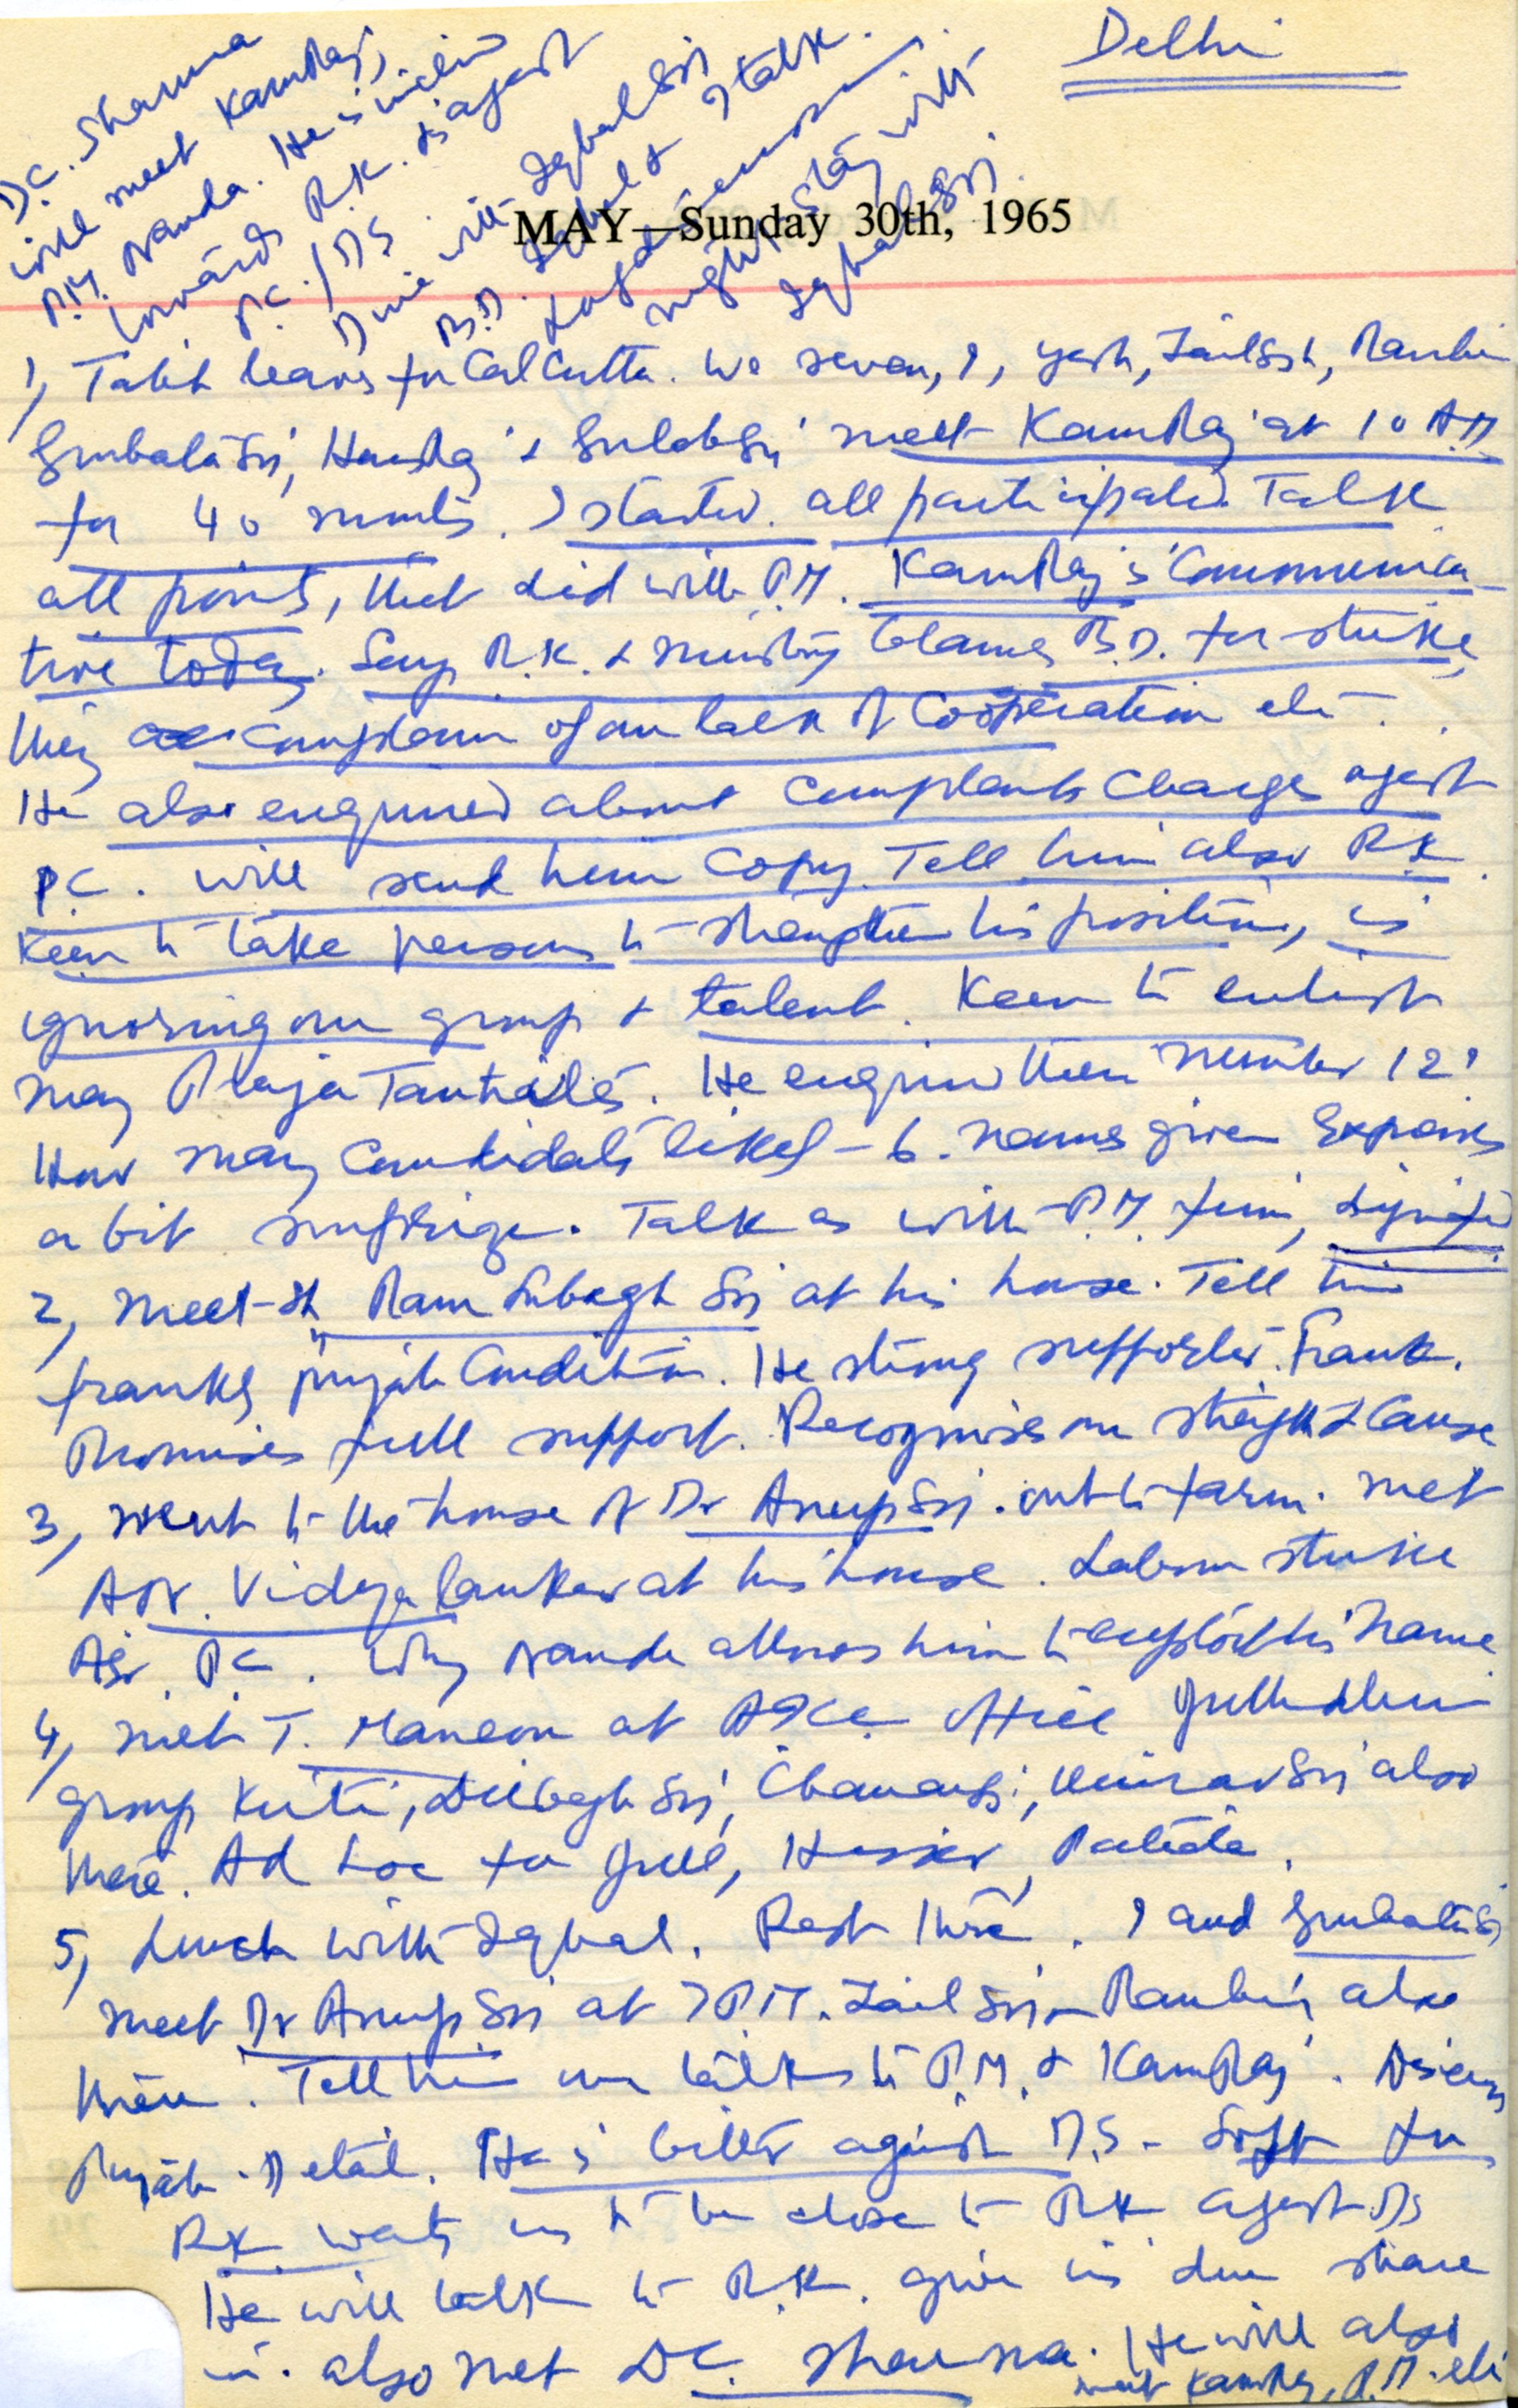 Delhi
MAY—Sunday 30th, 1965
D.C. Sharma
will meet KamRaj,
P.M. Nanda. He is
towards R.K. is agast
P.C. / D S
Dine with Iqbal Sri
talk.
night stay with
Iqbal Sri.
1, Talib leaves for Calcutta. We seven, I, Yash, Zail Sgh, Ranbir
Gurbata Sri, HansRaj & Gulab Sri meet KamRaj at 10 A.M
for 40 minuts. I started. all participated. Talk
all points, that did with P.M. KamRaj is Communica
tive today. Says R.K. & ministry blames B.D. for strike,
they complain of our lack of Cooperation etc.
He also enquired about Complants Charges agast
P.C. will send him Copy. Tell him also R.K.
Keen to take persons to strengthen his position, is
ignoring our group & talent. Keen to enlist
many Praja Tantrites. He enquired their number 12?
How many Candidats likely - 6. names given Express
a bit surprize. Talk as with P.M. firm, dignified
2, meet Sh Ram Subagh Sri at his house. Tell him
frankly punjab Condition. He strong supporter. Frank.
Promises full support. Recognises our strength & Cause
3, went to the house of Dr Anup Sri. out to farm. met
Am. Vidyalankar at his house. Labour strike
P.C. Why Nanda allows him to exploit his name
4, met T. Maneon at AICC office Jullundur
group Kirti, Dilbagh Sri, Umrao Sri also
there. Ad hoc for Jull, Hissar, Patiala.
5, Lunch with Iqbal. Rest there. I and Gurbata Sri
meet Dr Anup Sri at 7 P.M. Zail Sri & Ranbir also
there. Tell him our talks to P.M. & KamRaj. Discuss
Punjab Detail. He is bitter against D.S. - Soft for
R.K. wants us to be close to R.K. agast DS
He will talk to R.K. give us due share
in. also met D.C. Sharma. He will also
meet KamRaj, P.M. etc